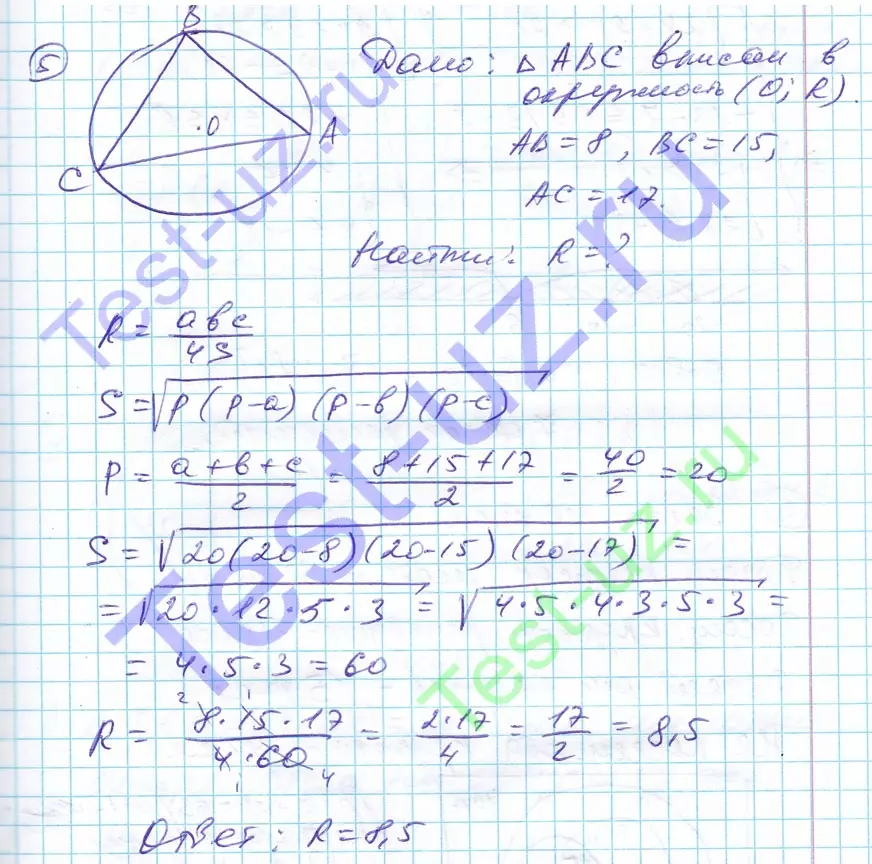 5
B
O
A
C
Дано: △ ABC вписан в
окружность (O; R).
AB = 8, BC = 15,
AC = 17.
Найти: R = ?
R = abc / 4S
S = √p(p-a)(p-b)(p-c)
p = a+b+c / 2 = 8+15+17 / 2 = 40 / 2 = 20
S = √20(20-8)(20-15)(20-17) =
= √20·12·5·3 = √4·5·4·3·5·3 =
= 4·5·3 = 60
R = 8·15·17 / 4·60 = 2·17 / 4 = 17 / 2 = 8,5
Ответ: R = 8,5
Test-uz.ru
Test-uz.ru
Test-uz.ru